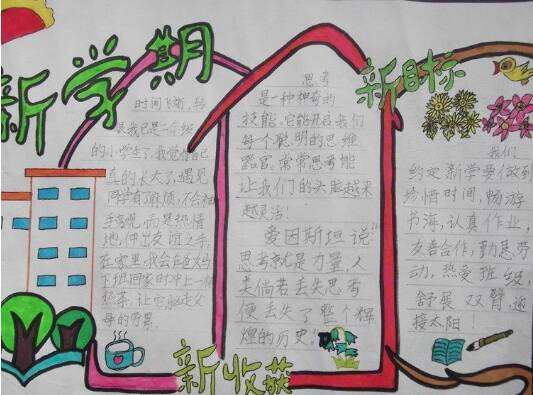 新学期
时间飞逝，转
眼我已是一年级
的小学生了，我觉得自己
真的长大了，遇见
同学有麻烦，不会袖
手旁观，而是热情
地，伸出友谊之手，
在家里，我会在爸妈
下班回家时冲上一杯
热茶，让它驱走父
母的劳累。
思考
是一种神奇的
技能，它能开启我们
每个聪明的思维
器官，常常思考能
让我们的头脑越来
越灵活！
爱因斯坦说“
思考就是力量，人
类倘若丢失思考
便丢失了整个辉
煌的历史”
新收获
新目标
我们
约定新学要做到
珍惜时间，畅游
书海，认真作业，
友善合作，勤恳劳
动，热爱班级，
舒展双臂，迎
接太阳！